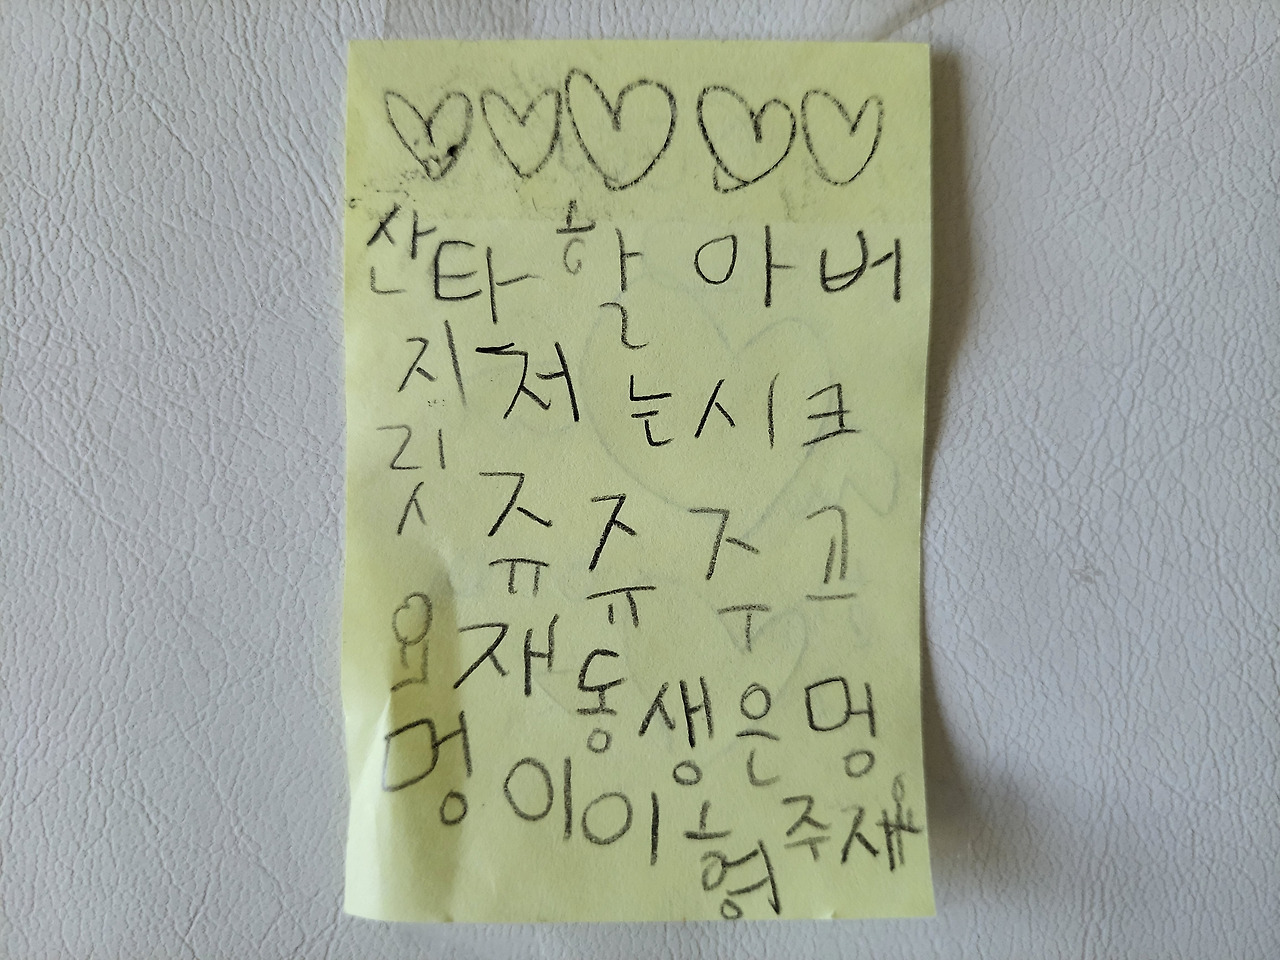 산타 할 아버
지 저 는시크
릿 쥬 쥬 주 고
요 재 동 생은 멍
멍 이이 형 주재요